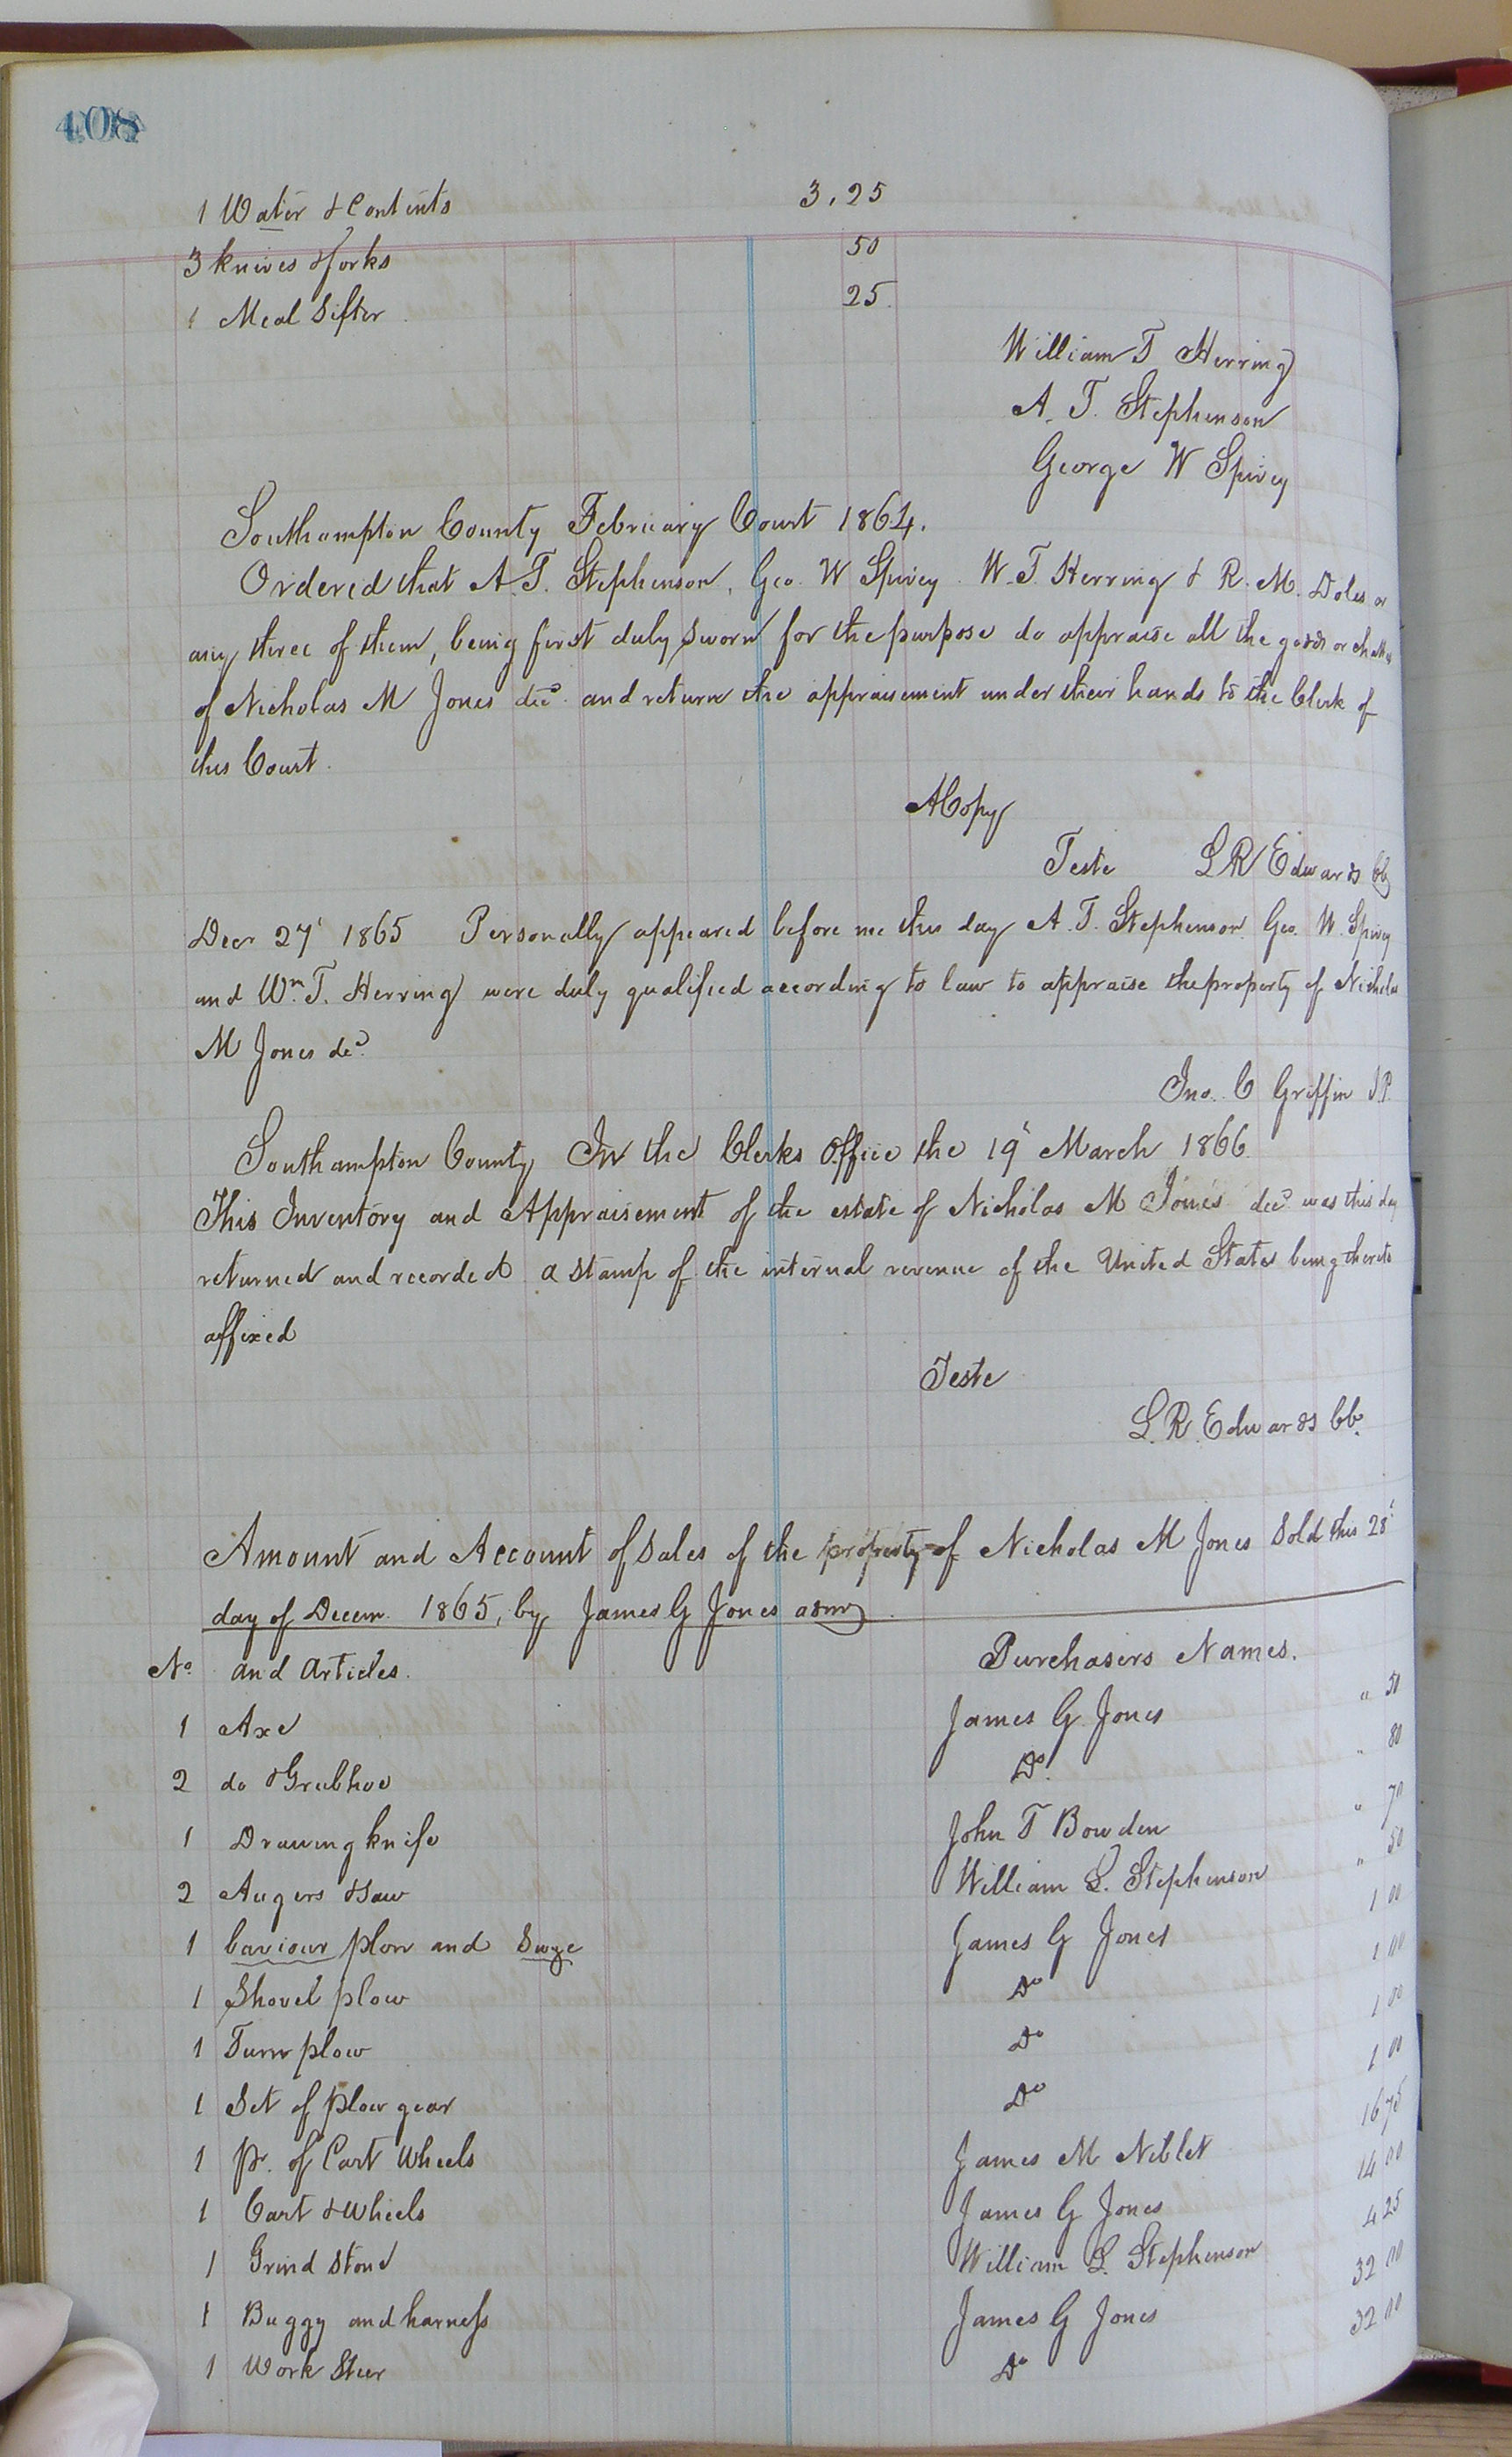 408
1 Water & Contents 3.25
3 knives & forks 50
1 Meal Sifter 25
William T Herring
A. T. Stephenson
George W Spivey
Southampton County February Court 1864.
Ordered that A. T. Stephenson, Geo. W Spivey W. T. Herring & R. M. Doles or
any three of them, being first duly sworn for the purpose do appraise all the goods or
of Nicholas M Jones decd. and return the appraisement under their hands to the Clerk of
this Court.
A Copy
Teste L R Edwards
Decr 27' 1865 Personally appeared before me this day A. T. Stephenson Geo. W. Spivey
and Wm. T. Herring were duly qualified according to law to appraise the property of Nicholas
M Jones decd.
Jno. C Griffin J.P.
Southampton County In the Clerks Office the 19' March 1866.
This Inventory and Appraisement of the estate of Nicholas M Jones decd was this day
returned and recorded a stamp of the internal revenue of the United States being thereto
affixed
Teste
L. R. Edwards CC.
Amount and Account of Sales of the property of Nicholas M Jones Sold this 28'
day of Decem. 1865, by James G Jones admr
No. and Articles. Purchasers Names.
1 Axe James G. Jones " 50
2 do & Grubhoe Do. " 80
1 Drawing knife John T Bowden " 70
2 Augers & Saw William L. Stephenson " 50
1 Caviour plow and Swye James G Jones 1 00
1 Shovel plow Do 1 00
1 Turn plow Do 1 00
1 Set of plow gear Do 1 00
1 pr. of Cart Wheels James M Niblet 16 75
1 Cart & Wheels James G Jones 14 00
1 Grind Stone William L. Stephenson 4 25
1 Buggy and harness James G Jones 32 00
1 Work Steer Do 32 00